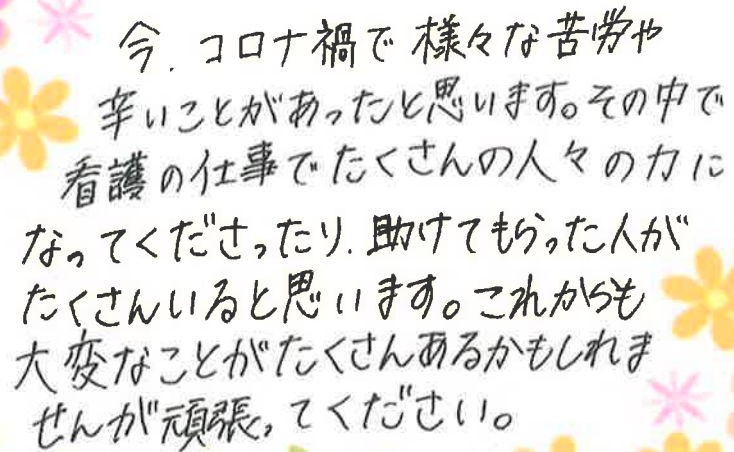 今、コロナ禍で様々な苦労や
辛いことがあったと思います。その中で
看護の仕事でたくさんの人々の力に
なってくださったり、助けてもらった人が
たくさんいると思います。これからも
大変なことがたくさんあるかもしれま
せんが頑張ってください。